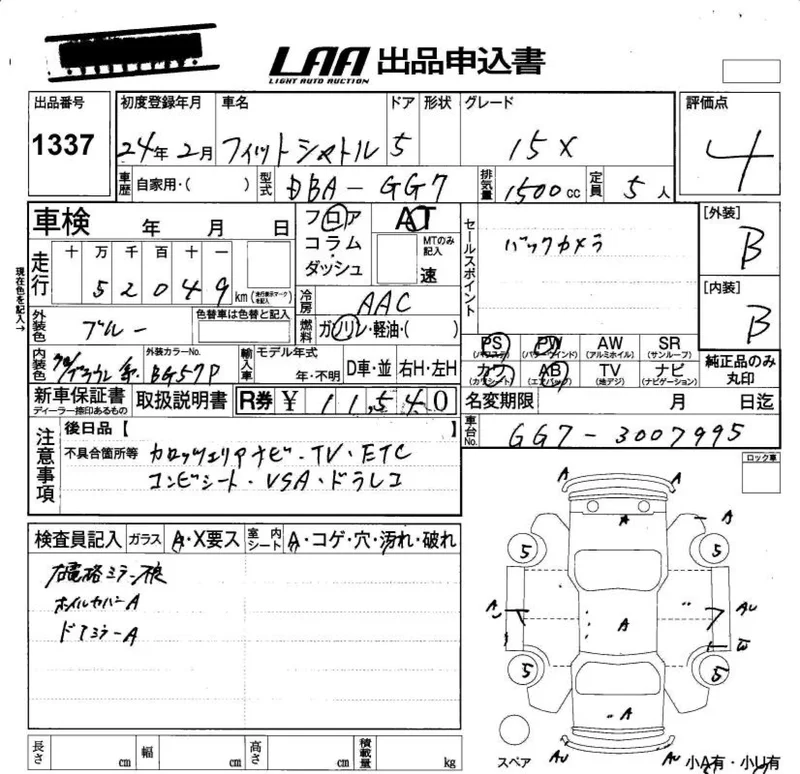 LAA 出品申込書
LIGHT AUTO AUCTION
出品番号 初度登録年月 車名 ドア 形状 グレード 評価点
1337 24年 2月 フィットシャトル 5 15X 4
車歴 自家用・( ) 型式 DBA-GG7 排気量 1500cc 定員 5人
車検 年 月 日 フロア コラム・ダッシュ AT MTのみ記入 速 セールスポイント バックカメラ [外装] B
現在色を記入→
走行 十 万 千 百 十 一
5 2 0 4 9 km (走行表示マークを記入) 冷房 AAC [内装] B
外装色 ブルー 色替車は色替と記入 燃料 ガソリン・軽油・( )
PS (パワステ) PW (パワーウインド) AW (アルミホイル) SR (サンルーフ)
カワ (カワシート) AB (エアバック) TV (地デジ) ナビ (ナビゲーション) 純正品のみ丸印
内装色 外装カラーNo. BG57P 輸入車 モデル年式 年・不明 D車・並 右H・左H
新車保証書 ディーラー捺印あるもの 取扱説明書 R券 ¥ 11,540 名変期限 月 日迄
車台No. GG7-3007995
注意事項 後日品【 】
不具合箇所等 カロッツェリアナビ・TV・ETC
コンビシート・VSA・ドラレコ
ロック車
検査員記入 ガラス A・X要ス 室内シート A・コゲ・穴・汚れ・破れ
ホイルカバーA
ドアミラーA
A
A
A
5 5
A AU
A
W
5 5
A
スペア AU AU 小A有・小U有
長さ cm 幅 cm 高さ cm 積載量 kg